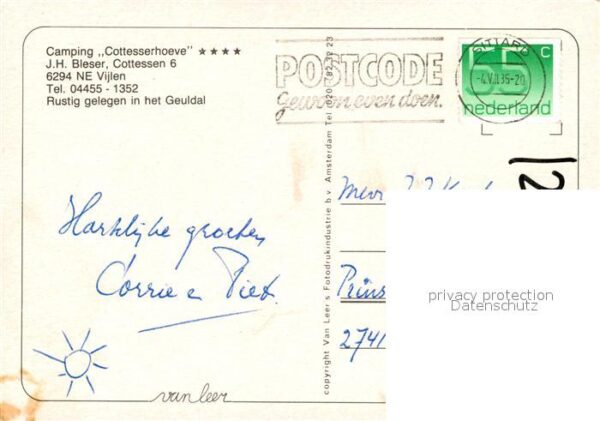 Camping „Cottesserhoeve" ★★★★
J.H. Bleser, Cottessen 6
6294 NE Vijlen
Tel. 04455 - 1352
Rustig gelegen in het Geuldal
POSTCODE
gewoon even doen.
SITTARD
-4.VII.85-20
65 C
nederland
copyright Van Leer's Fotodrukindustrie b.v. Amsterdam Tel. 020
Hartelijke groeten
Corrie en Piet.
Mevr
Prins
2741
privacy protection
Datenschutz
van leer